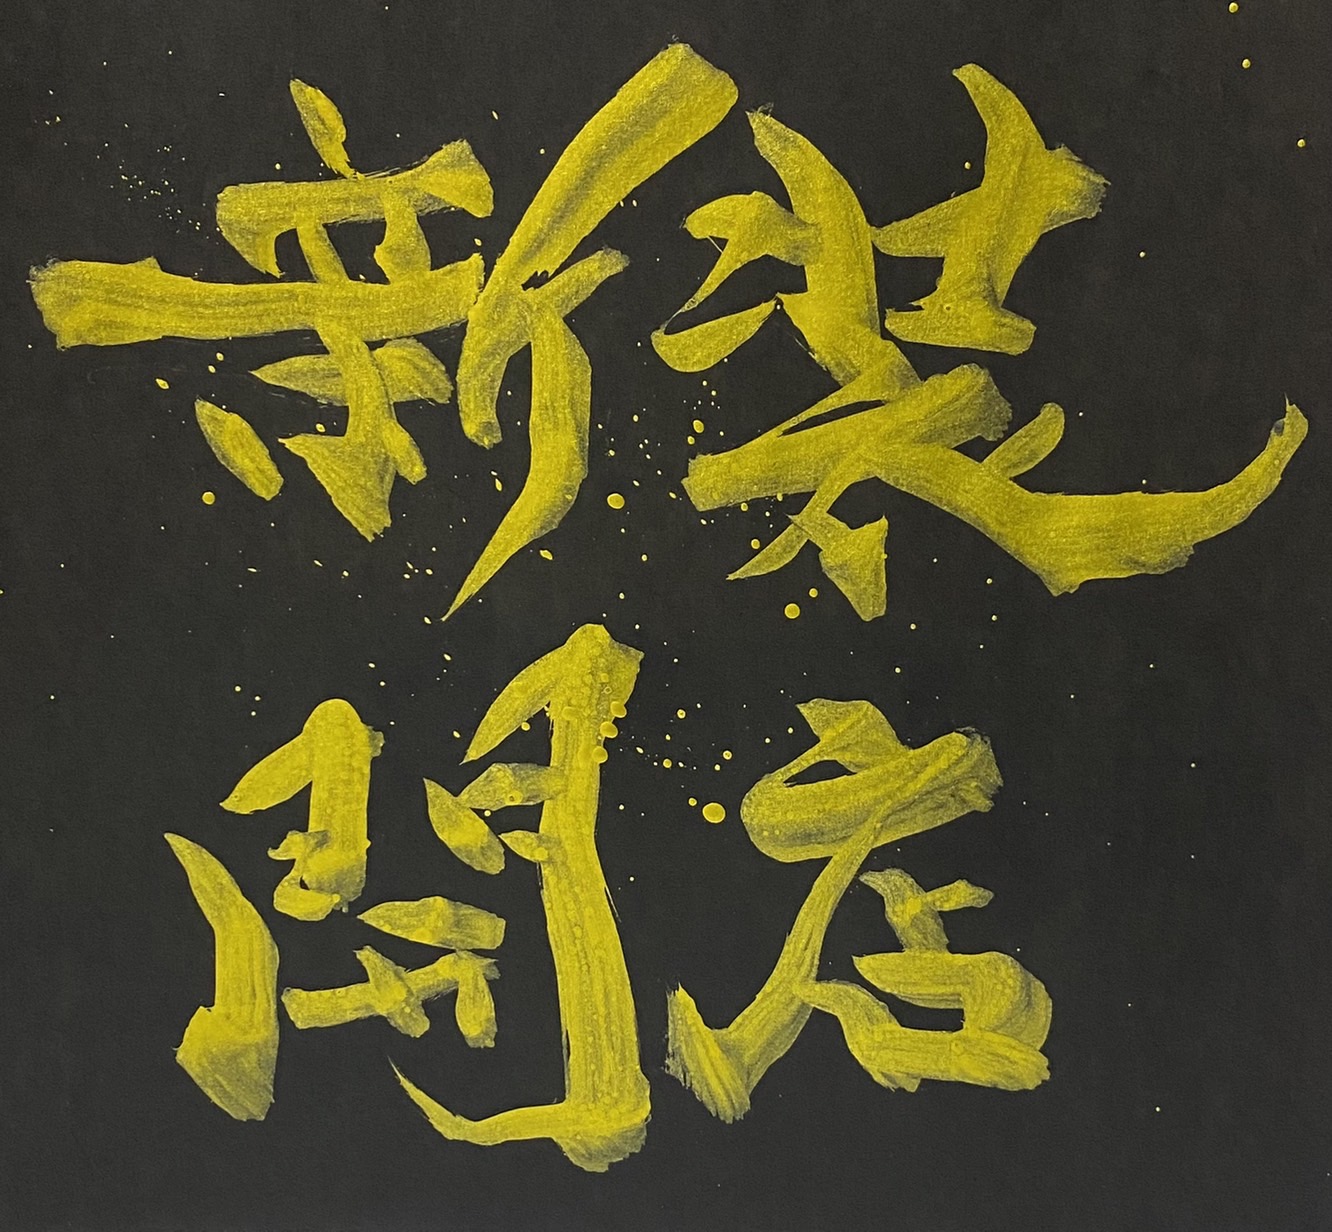 新装
開店